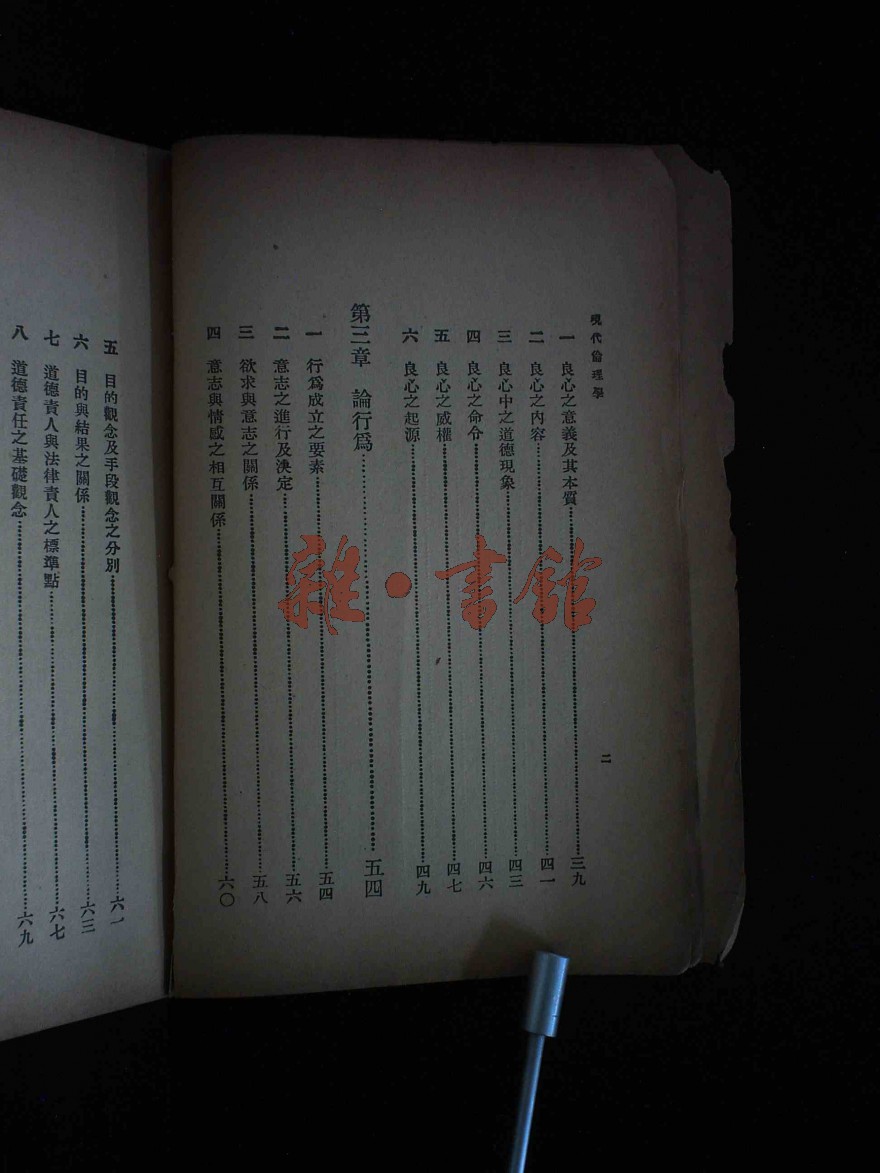 現代倫理學
一 良心之意義及其本質…………三九
二 良心之內容…………四一
三 良心中之道德現象…………四三
四 良心之命令…………四六
五 良心之威權…………四七
六 良心之起源…………四九
第三章 論行爲…………五四
一 行爲成立之要素…………五四
二 意志之進行及決定…………五六
三 欲求與意志之關係…………五八
四 意志與情感之相互關係…………六〇
二
五 目的觀念及手段觀念之分別…………六一
六 目的與結果之關係…………六三
七 道德責人與法律責人之標準點…………六七
八 道德責任之基礎觀念…………六九
雜·書館